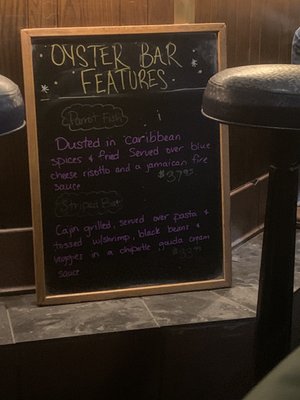 OYSTER BAR
FEATURES
Parrot Fish
Dusted in caribbean
spices & fried served over blue
cheese risotto and a jamaican fire
sauce $37
Striped Bass
Cajun grilled, served over pasta &
tossed w/shrimp, black beans &
veggies in a chipotle gouda cream
sauce $33